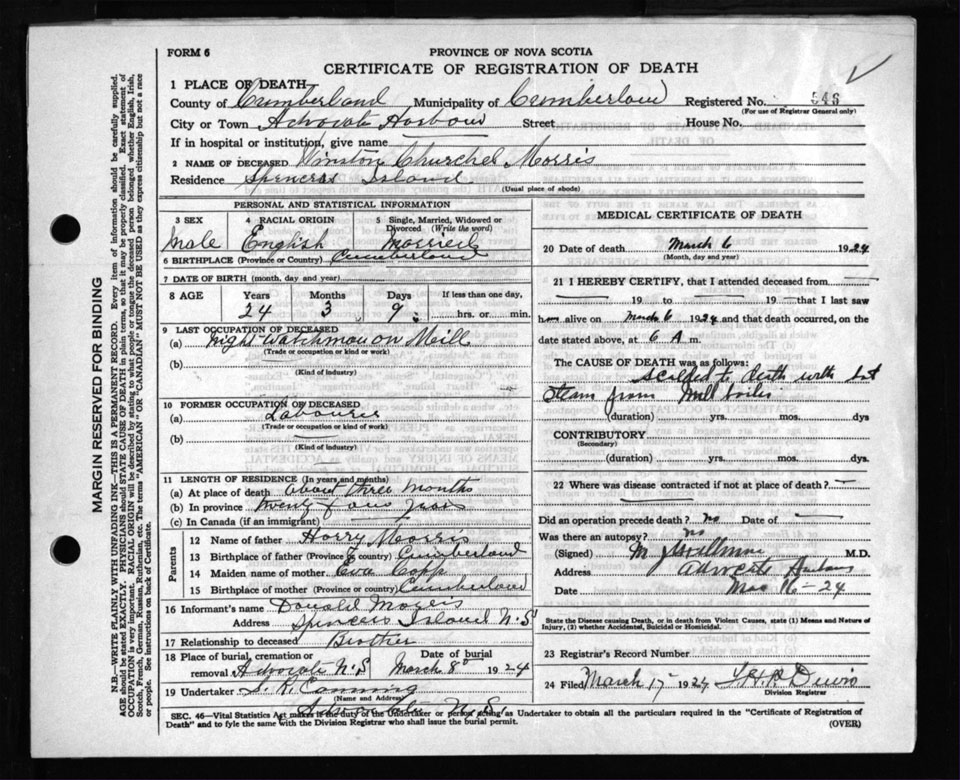 FORM 6
PROVINCE OF NOVA SCOTIA
CERTIFICATE OF REGISTRATION OF DEATH
1 PLACE OF DEATH
County of Cumberland Municipality of Cumberland Registered No. 546
(For use of Registrar General only)
City or Town Advocate Harbour Street House No.
If in hospital or institution, give name
2 NAME OF DECEASED Winston Churchel Morris
Residence Spencers Island
(Usual place of abode)
PERSONAL AND STATISTICAL INFORMATION
3 SEX 4 RACIAL ORIGIN 5 Single, Married, Widowed or Divorced (Write the word)
Male English Married
6 BIRTHPLACE (Province or Country) Cumberland
7 DATE OF BIRTH (month, day and year)
8 AGE Years Months Days If less than one day,
24 3 9 hrs. or min.
9 LAST OCCUPATION OF DECEASED
(a) Night Watchman on Mill
(Trade or occupation or kind or work)
(b)
(Kind of industry)
10 FORMER OCCUPATION OF DECEASED
(a) Labourer
(Trade or occupation or kind of work)
(b)
(Kind of Industry)
11 LENGTH OF RESIDENCE (In years and months)
(a) At place of death about three months
(b) In province twenty four years
(c) In Canada (if an immigrant)
Parents
12 Name of father Harry Morris
13 Birthplace of father (Province or country) Cumberland
14 Maiden name of mother Eva Copp
15 Birthplace of mother (Province or country) Cumberland
16 Informant's name Donald Morris
Address Spencers Island N.S
17 Relationship to deceased Brother
18 Place of burial, cremation or removal Advocate N.S Date of burial March 8 1924
19 Undertaker Canning
(Name and Address)
Advocate N.S
MEDICAL CERTIFICATE OF DEATH
20 Date of death March 6 1924
(Month, day and year)
21 I HEREBY CERTIFY, that I attended deceased from
19 to 19 that I last saw
h alive on March 6 1924 and that death occurred, on
date stated above, at 6 A m.
The CAUSE OF DEATH was as follows:
scalded to death with hot
steam from mill boiler
(duration) yrs. mos. dys
CONTRIBUTORY
(Secondary)
(duration) yrs. mos. dys
22 Where was disease contracted if not at place of death?
Did an operation precede death? no Date of
Was there an autopsy? no
(Signed) M.D.
Address Advocate Harbour
Date Mar 16-24
State the Disease causing Death, or in death from Violent Causes, state (1) Means and Nature of
Injury, (2) whether Accidental, Suicidal or Homicidal.
23 Registrar's Record Number
24 Filed March 17 1924
Division Registrar
SEC. 46—Vital Statistics Act makes it the duty of the Undertaker or person acting as Undertaker to obtain all the particulars required in the "Certificate of Registration of
Death" and to fyle the same with the Division Registrar who shall issue the burial permit.
(OVER)
MARGIN RESERVED FOR BINDING
N.B.—WRITE PLAINLY WITH UNFADING INK—THIS IS A PERMANENT RECORD. Every item of information should be carefully supplied.
AGE should be stated EXACTLY. PHYSICIANS should STATE CAUSE OF DEATH in plain terms, so that it may be properly classified. Exact statement of
OCCUPATION is very important. RACIAL ORIGIN will be described by stating to what people or tongue the deceased person belonged whether English, Irish,
Scotch, French, German, Russian, Ruthenian, etc. The terms "AMERICAN" OR "CANADIAN" MUST NOT BE USED as they express citizenship but not a race
or people. See instructions on back of Certificate.